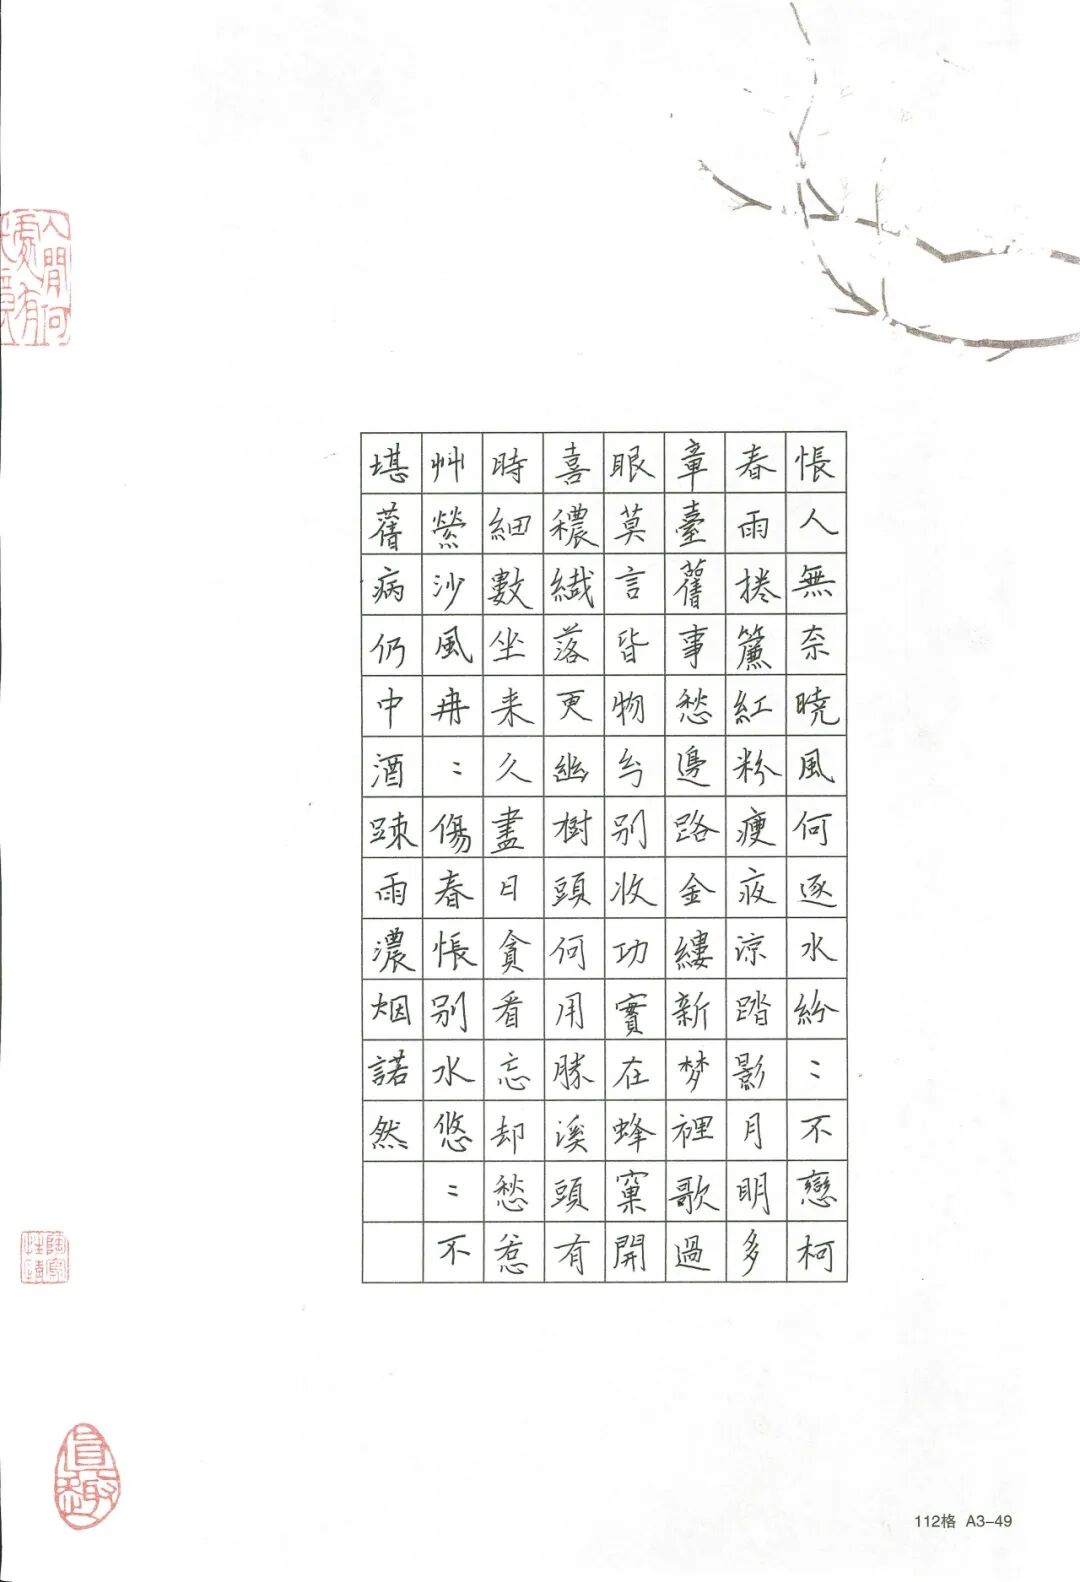 悵人無奈曉風何逐水紛〻不戀柯
春雨捲簾紅粉瘦夜涼踏影月明多
章臺舊事愁邊路金縷新梦裡歌過
眼莫言皆物幻别收功實在蜂窠開
喜穠纖落更幽樹頭何用勝溪頭有
時細數坐来久盡日貪看忘却愁惹
艸縈沙風冉〻傷春悵别水悠〻不
堪舊病仍中酒踈雨濃烟諾然
人間何處有
陶寫性情
真趣
112格 A3-49